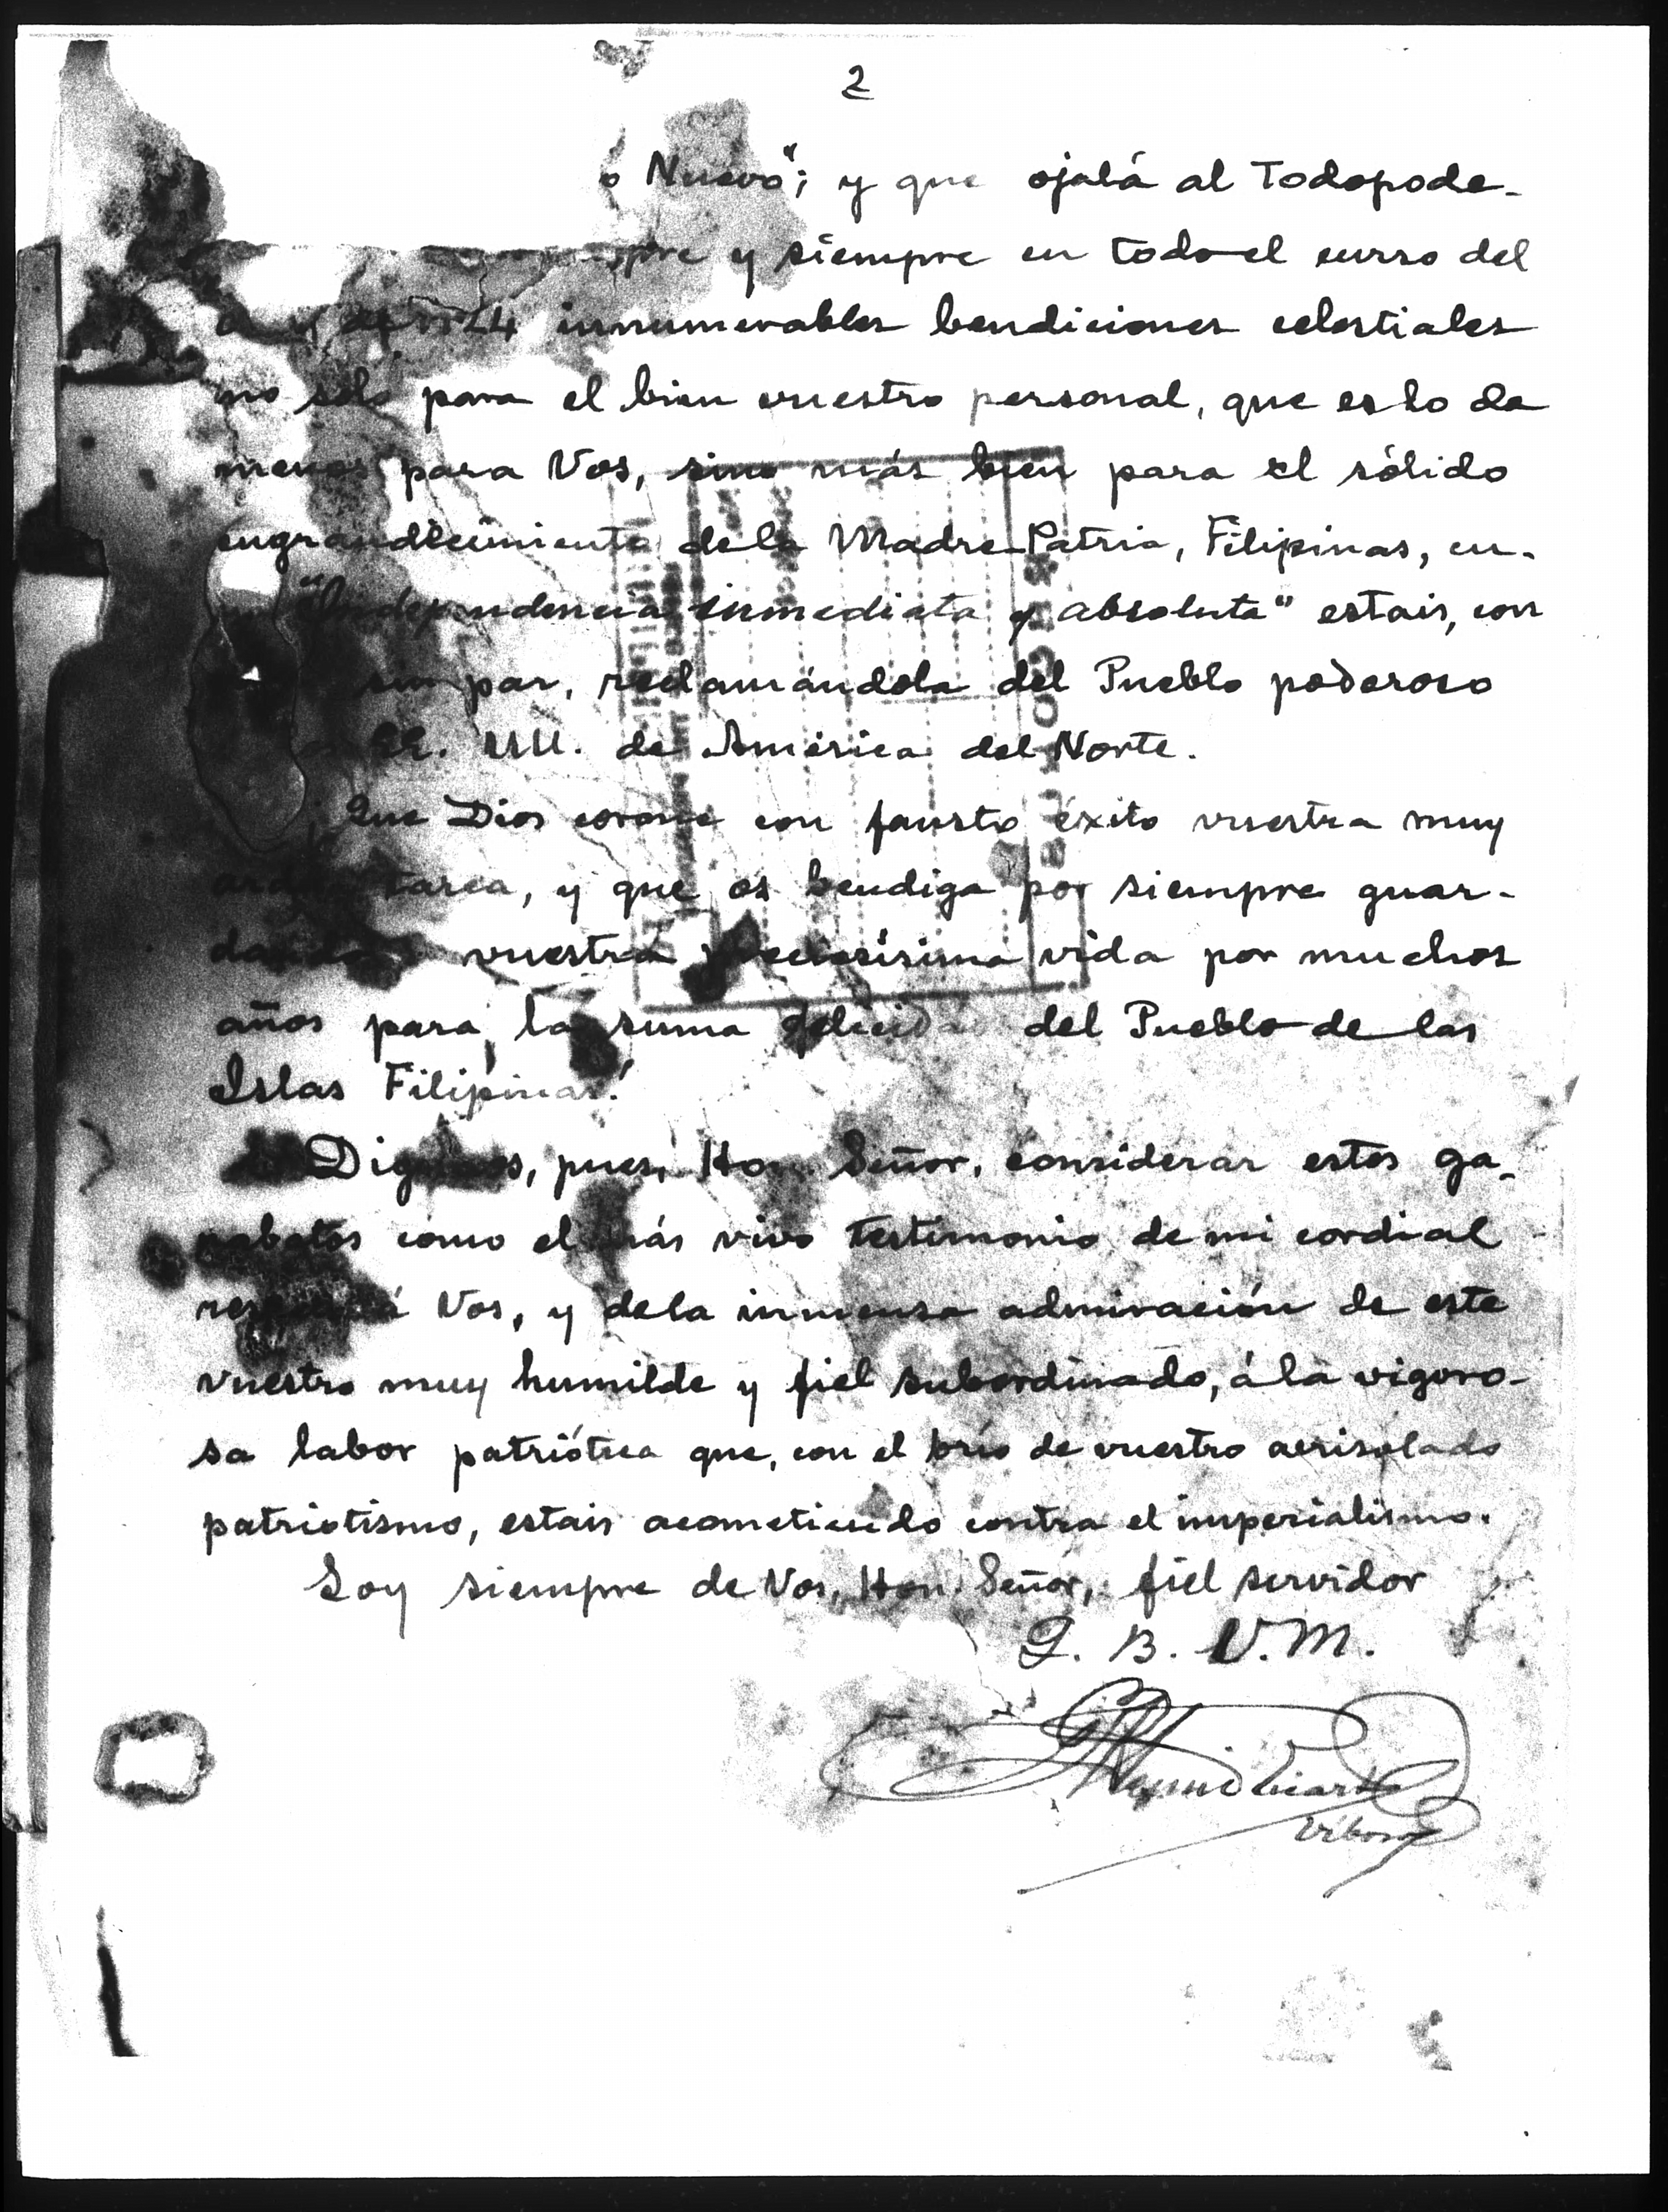 2
o Nuevo"; y que ojalá al Todopode-
y siempre en todo el curso del
innumerables bendiciones celestiales
no sólo para el bien vuestro personal, que es lo de
menos para Vos, sino más bien para el sólido
engrandecimiento de la Madre Patria, Filipinas, cu-
"Independencia inmediata y absoluta" estais, con
sin par, reclamándola del Pueblo poderoso
EE. UU. de América del Norte.
¡Que Dios corone con fausto éxito vuestra muy
ardua tarea, y que os bendiga por siempre guar-
dando vuestra preciosísima vida por muchos
años para la suma felicidad del Pueblo de las
Islas Filipinas!
Dignaos, pues, Hon. Señor, considerar estos ga-
rabatos como el más vivo testimonio de mi cordial
respeto á Vos, y de la inmensa admiración de este
vuestro muy humilde y fiel subordinado, á la vigoro-
sa labor patriótica que, con el brío de vuestro acrisolado
patriotismo, estais acometiendo contra el imperialismo.
Soy siempre de Vos, Hon. Señor, fiel servidor
Q. B. V. M.